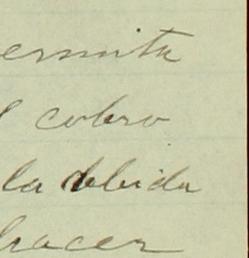 ermita
l cobro
la debida
hacer